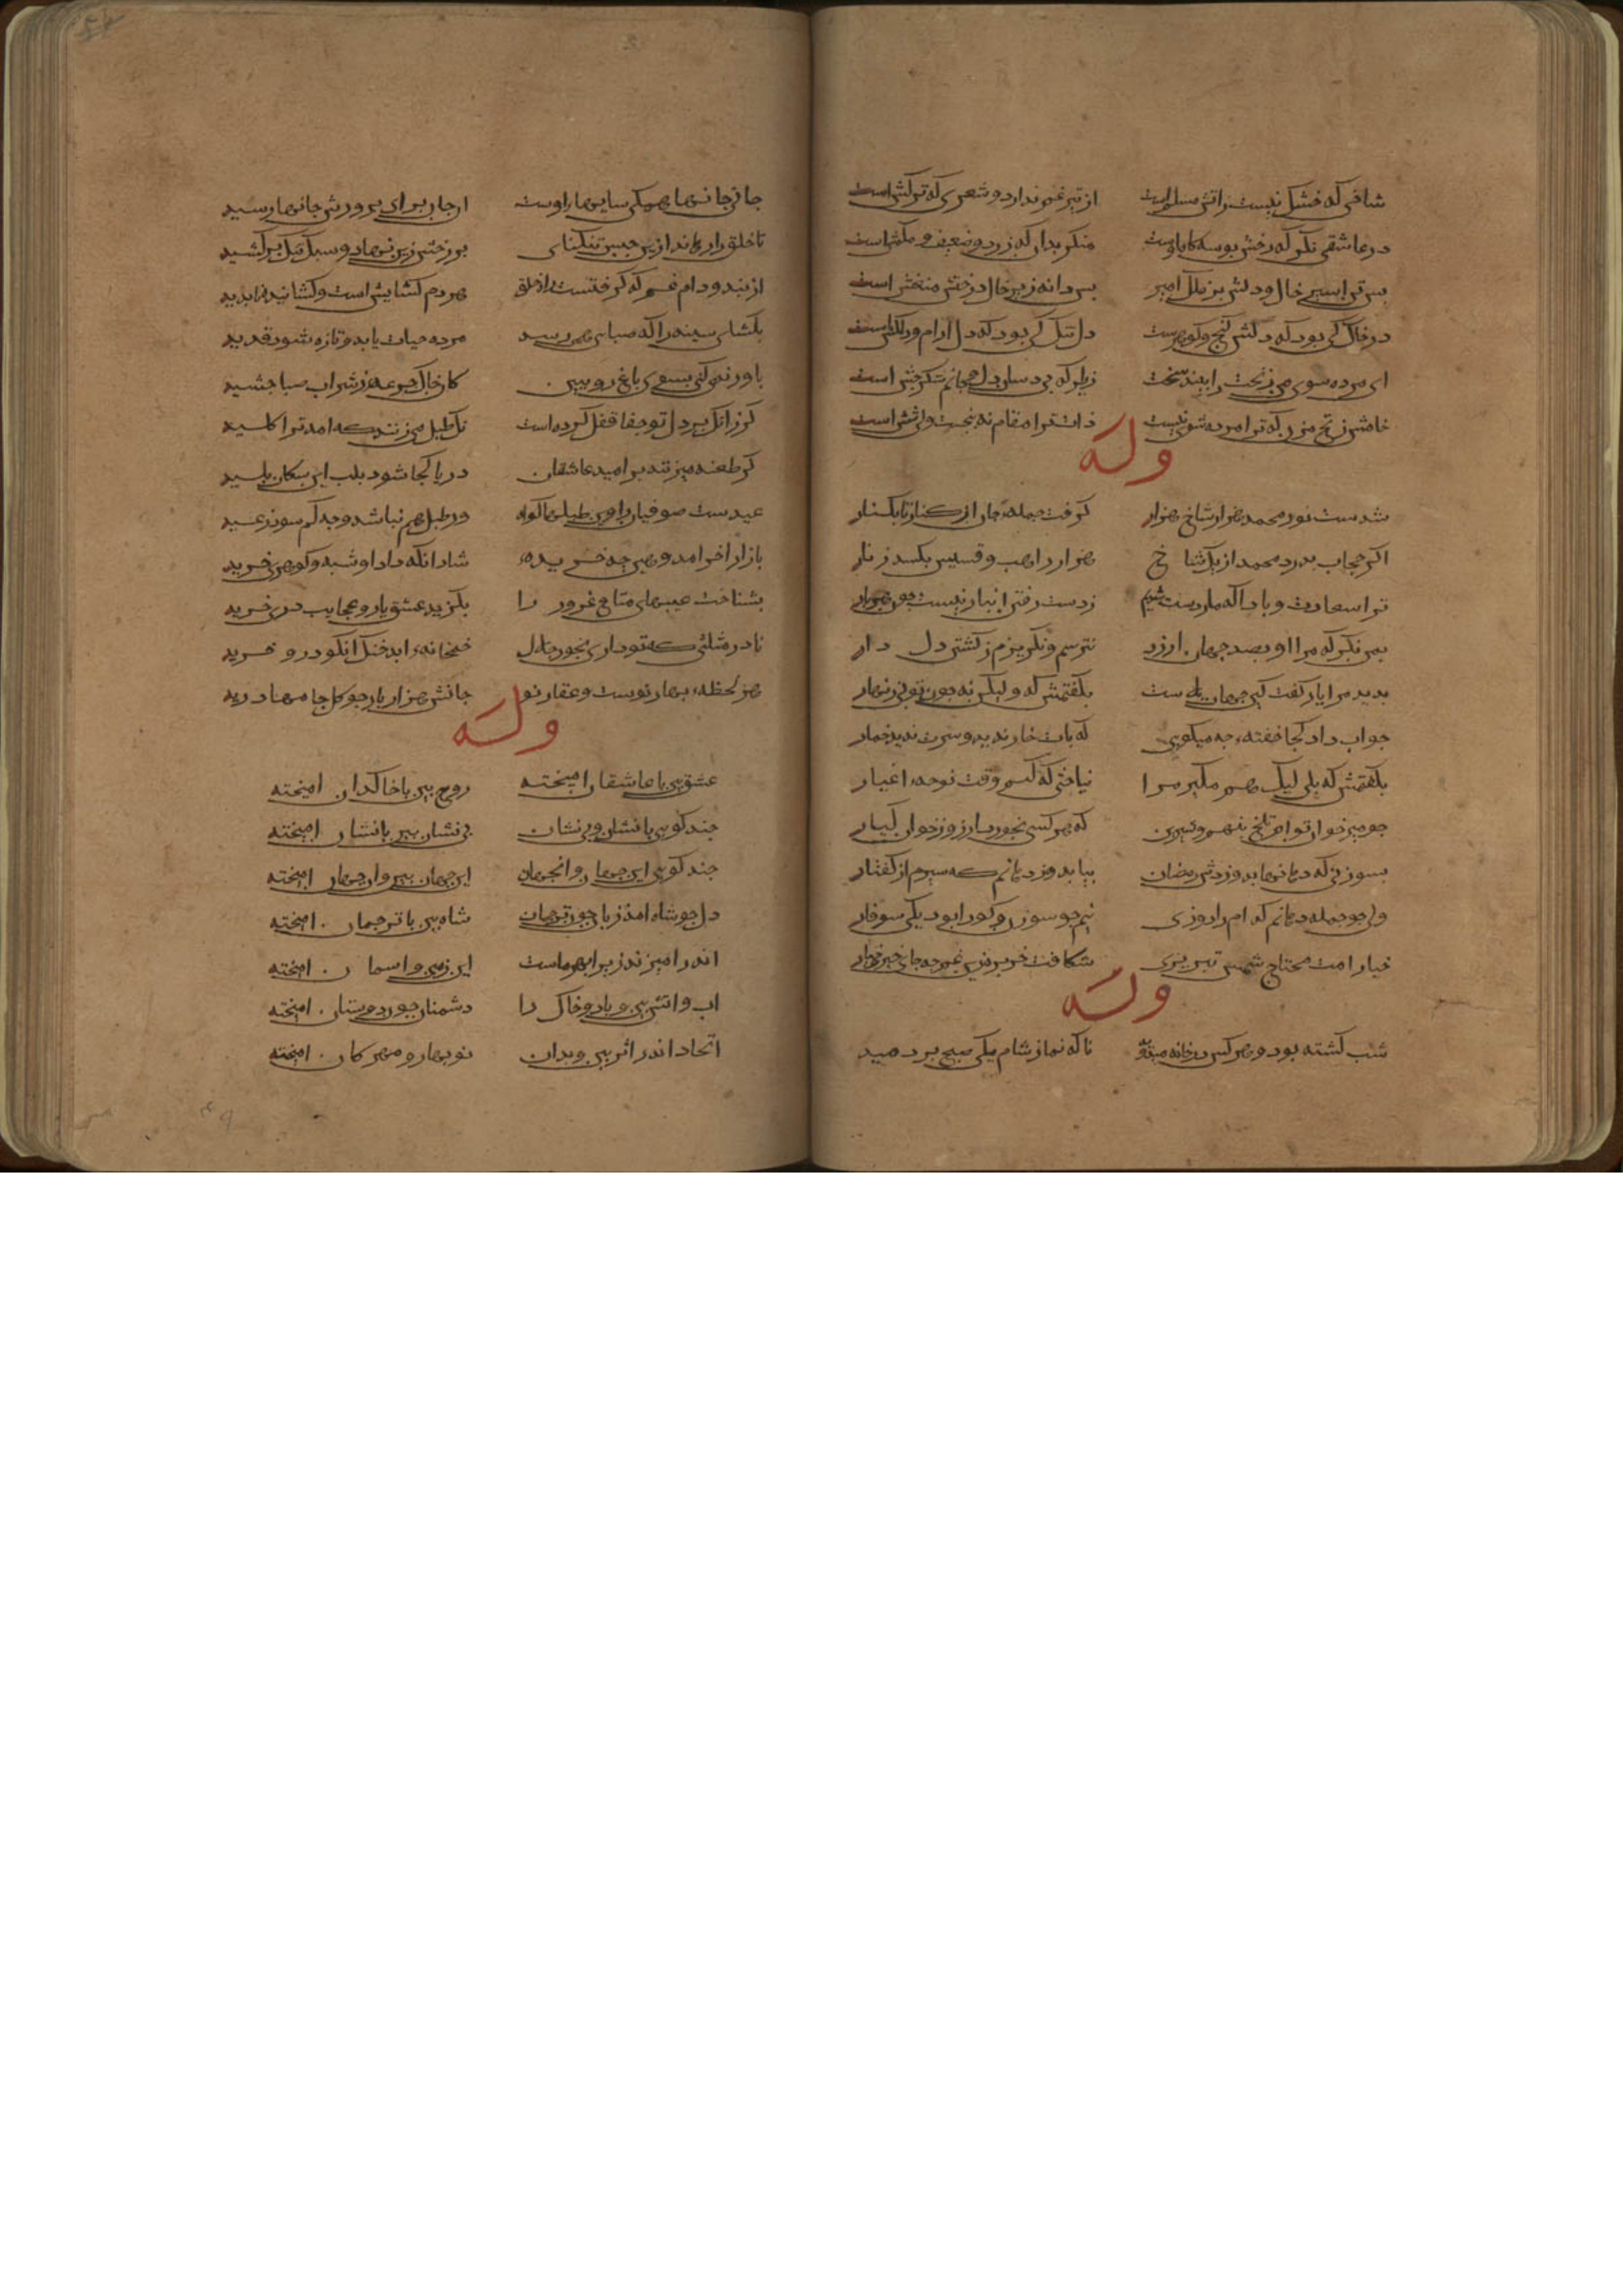 شاخی که خشک نیست ز اتش مسلم است از تیر غم ندارد و شعری که ترکش است
در عاشقی نکر که رخش بوسه کاه اوست منکر بدان که زرد و ضعیف و مکمش است
بس تن اسیر خاک و دلش بر فلک امیر بس دانه زیر خاک درختش منعش است
در خاک کی بود که دلش کنج و کوهرست دل تنک کی بود که دل ارام در کش است
ای مرده شوی من زنخت را ببند سخت زیرا که بی دهان دل و جانم شکرجش است
خامش زنخ مزن که ترا مرده شوی نیست ذات ترا مقام نه پنجست و نی شش است
وله
شدست نور محمد هزار شاخ هزار کرفت جمله جهان از کنار تا بکنار
اکر حجاب بدرد محمد از یک شاخ هزار راهب و قسیس بکسلد زنار
ترا سعادت و بادا که ما ز دست شدیم ز دست رفتن این بار نیست چون هر بار
نترسم و نکریزم ز کشتن دل دار
بدید مرا یار کفت کین جهان بکفتمش که ولیکن نه چون توی زنهار
جواب داد کجا خفته چه میکویی که بات خار ندید و سرت ندید خمار
بکفتمش که بلی لیک هم مکیر مرا نیاختی که کنم وقت نوحه اغیار
که هر کسی بخورد بار زور خوان کبار
بسوزنی که دهانها بدوزدش رمضان بیا بدوز دهانم که سیرم از کفتار
ولی چو جمله دهانم کدام را دوزی نیم چو سوزن و کورا بود یکی سوفار
خیار امت محتاج شمس تبریزی شکافت خربزه زین غم چه جای خیر خیار
وله
شب کشته بود و هر کس در خانه میدوید ناکه نماز شام یکی صبح بر دمید
جانی جانها همکی سایها راوست ان جان برای پرورش جانها رسید
تا خلق را رهاند ازین حبس تنکنای بر رخش زین نهاد و سبک تنک بر کشید
از بند و دام غم که کرفتست راه خلق هر دم کشایش است و کشاننده نابدید
بکشای سینه را که صبایی همی رسد مرده حیات یابد و تازه شود قدید
باور نمی کنی بسوی باغ رو ببین کان خاک جرعه ز شراب صبا چشید
کر زانک بر دل تو جفا قفل کرده است نک طبل می زنند که امد ترا کلید
کر طعنه میزنند بر امید عاشقان دریا کجا شود بلب این سکان پلید
عیدست صوفیان را وین طبلها کواه ور طبل هم نباشد وجه کم شود ز عید
بازار اخر امد و هین چه خریده شاد انکه داد او شبه و کوهری خرید
بشناخت عیبهای متاع غرور را بکزید عشق یار و عجایب دری خرید
نادر مثلثی که تو داری بخور حلال خمخانه ابد خنک انکو درو خزید
هر لحظه بهار نوست و عقار نو جانش هزار بار چو کل جامها درید
وله
عشق بین با عاشقان امیخته روح بین با خاکدان امیخته
چند کویی با نشان و بی نشان بی نشان بین با نشان امیخته
چند کویی این جهان و انجهان این جهان بین وان جهان امیخته
دل چو شاه امد زبان چون ترجمان شاه بین با ترجمان امیخته
اندر امیزند زیرا بهر ماست این زمین و اسمان امیخته
اب و اتش بین و باد و خاک را دشمنان چون دوستان امیخته
اتحاد اندر اثر بین و بدان نوبهار و مهرکان امیخته
۴۹